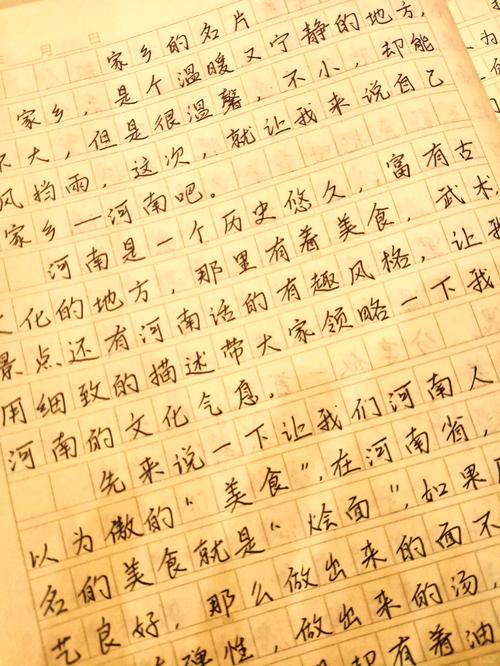 月 日
家乡的名片
家乡，是个温暖又宁静的地方，
不大，但是很温馨，不小，却能
风挡雨，这次，就让我来说自己
家乡—河南吧。
河南是一个历史悠久，富有古
文化的地方，那里有着美食，武术
景点还有河南话的有趣风格，让我
用细致的描述带大家领略一下我
河南的文化气息。
先来说一下让我们河南人
以为傲的“美食”，在河南省，
名的美食就是“烩面”，如果
艺良好，那么做出来的面不
弹性，做出来的汤
却有着油